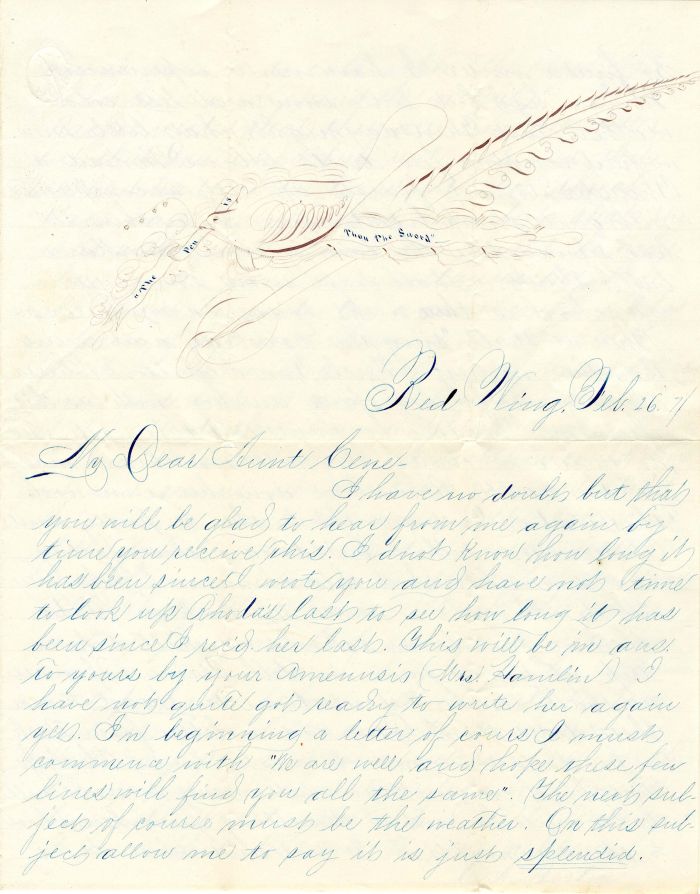 "The Pen is
Than the Sword"
Red Wing, Feb. 26. 71
My Dear Aunt Cene-
I have no doubt but that
you will be glad to hear from me again by
time you receive this. I dnot know how long it
has been since I wrote you and have not time
to look up Rhoda's last to see how long it has
been since I rec'd her last. This will be in ans.
to yours by your (Mrs. Hamlin) I
have not quite got ready to write her again
yet. In beginning a letter of cours I must
commence with "We are well and hope these few
lines will find you all the same". (The next sub-
ject of course must be the weather. On this sub-
ject allow me to say it is just splendid.